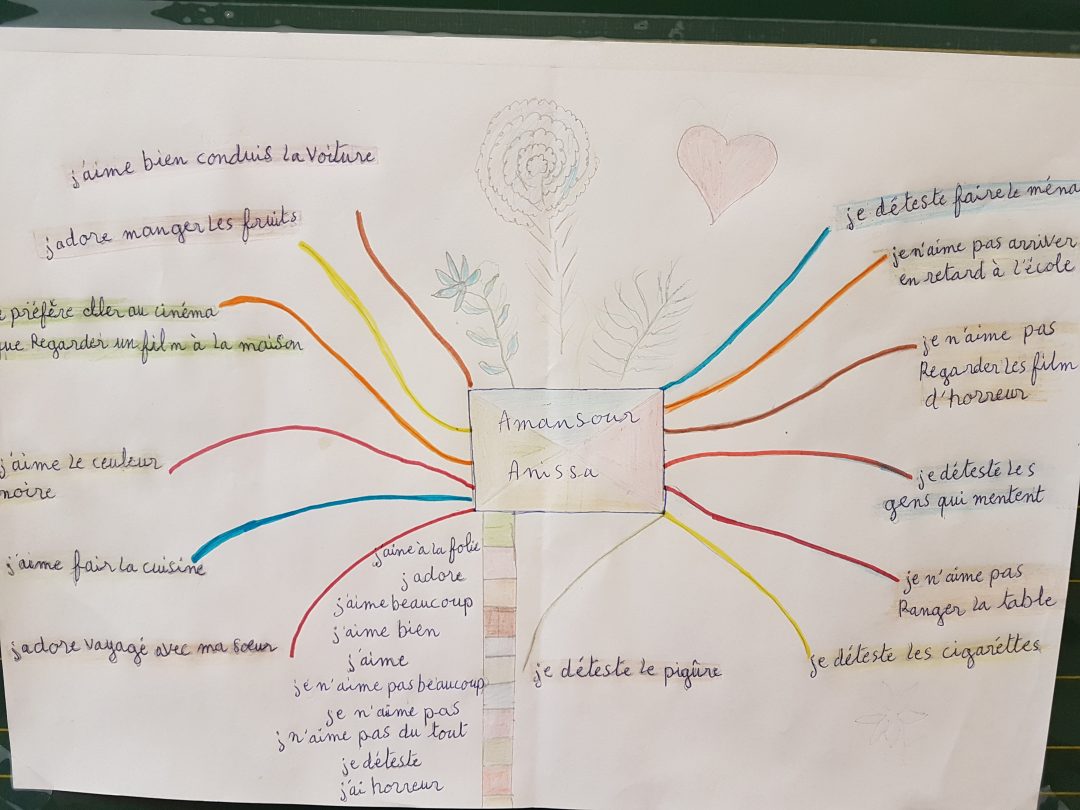 j'aime bien conduis la voiture
j'adore manger les fruits
préfère aller au cinéma
que Regarder un film à la maison
j'aime le couleur
noire
j'aime fair la cuisine
j'adore vayagé avec ma soeur
Amansour
Anissa
j'aime à la folie
j'adore
j'aime beaucoup
j'aime bien
j'aime
je n'aime pas beaucoup
je n'aime pas
j n'aime pas du tout
je déteste
j'ai horreur
je déteste faire le ména
je n'aime pas arriver
en retard à l'école
je n'aime pas
Regarder les film
d'horreur
je déteste les
gens qui mentent
je n'aime pas
Ranger la table
je déteste les cigarettes
je déteste le piqûre